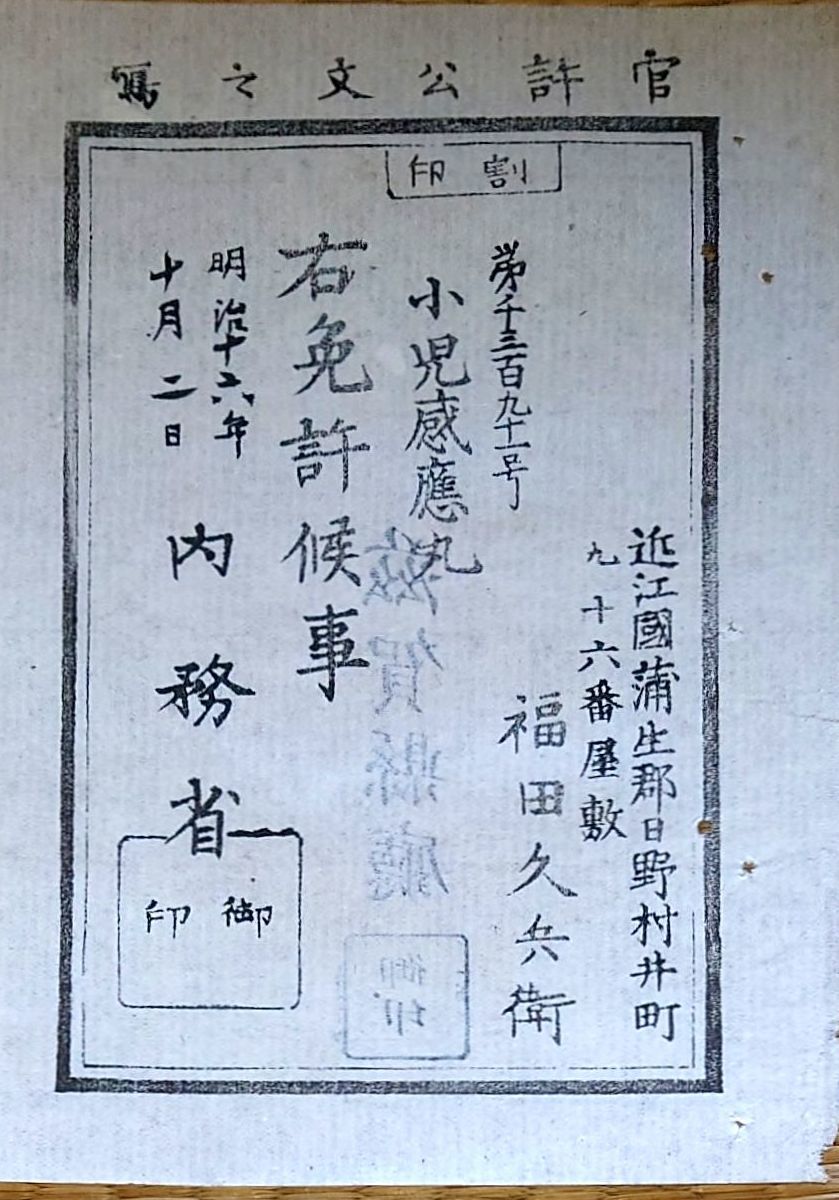 官許公文之寫
割印
近江國蒲生郡日野村井町
九十六番屋敷
福田久兵衛
第千三百九十一号
小児感應丸
右免許候事
明治十六年
十月二日
内務省
御印
滋賀縣廳
御印